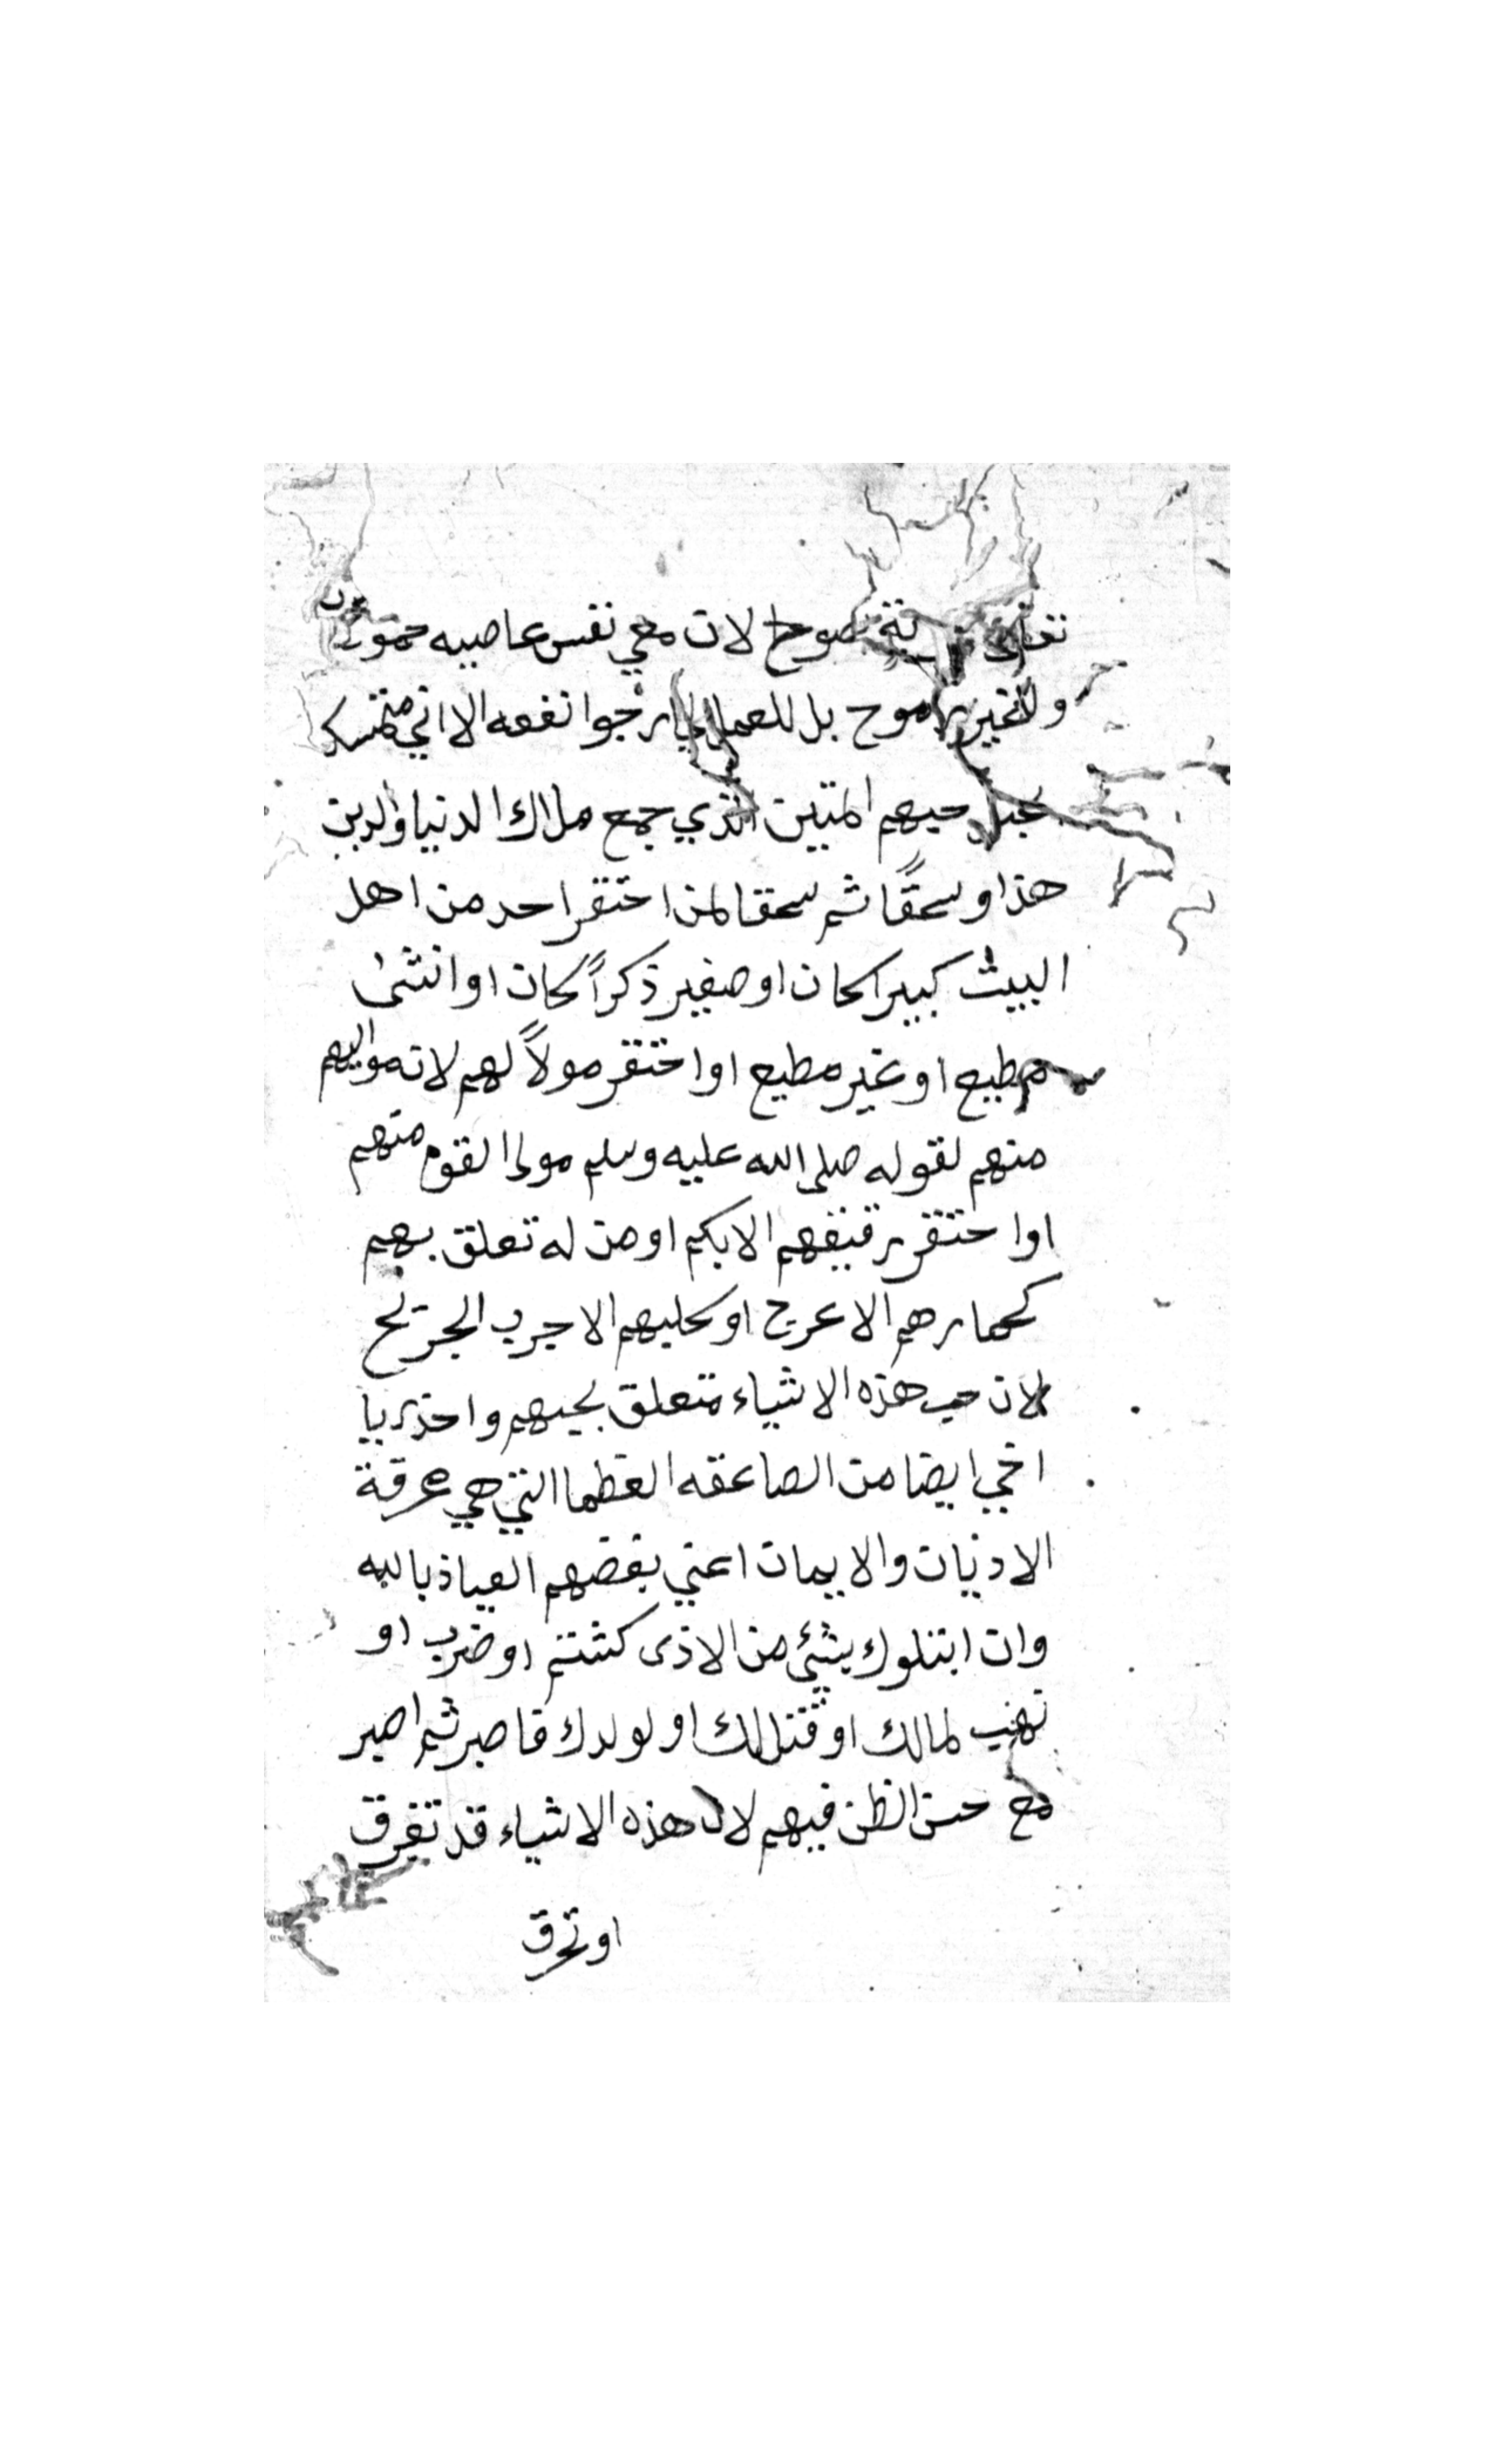 تعالى توبة نصوح لان معي نفس عاصيه حموح
وللخير بل للعمل ارجوا نفعه الا اني متمسك
بحبل حبهم المتين الذي جمع ملاك الدنيا والدين
هذا وسحقًا ثم سحقا لمن احتقر احد من اهل
البيت كبيرا كان او صغير ذكرًا كان او انثى
مطيع او غير مطيع او احتقر مولاً لهم لان مواليهم
منهم لقوله صلى الله عليه وسلم مولى القوم منهم
او احتقر رقيقهم الابكم او من له تعلق بهم
كحمارهم الاعرج او كلبهم الاجرب الجريح
لان حب هذه الاشياء متعلق بحبهم واحذر يا
اخي ايضا من الصاعقه العظما التي هي محرقة
الاديان والايمان اعني بغضهم العياذ بالله
وان ابتلوك بشئ من الاذى كشتم او ضرب او
نهب لمالك او قتل لك او لولدك فاصبر ثم اصبر
مع حسن الظن فيهم لان هذه الاشياء قد تفرق
او تحرق